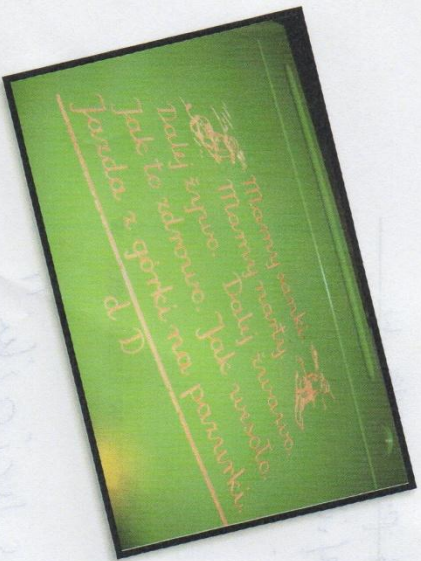 Mamy sanki
Mamy narty
Dalej żywo. Dalej żwawo.
Jak to zdrowo. Jak wesoło.
Jazda z górki na pazurki.
d D